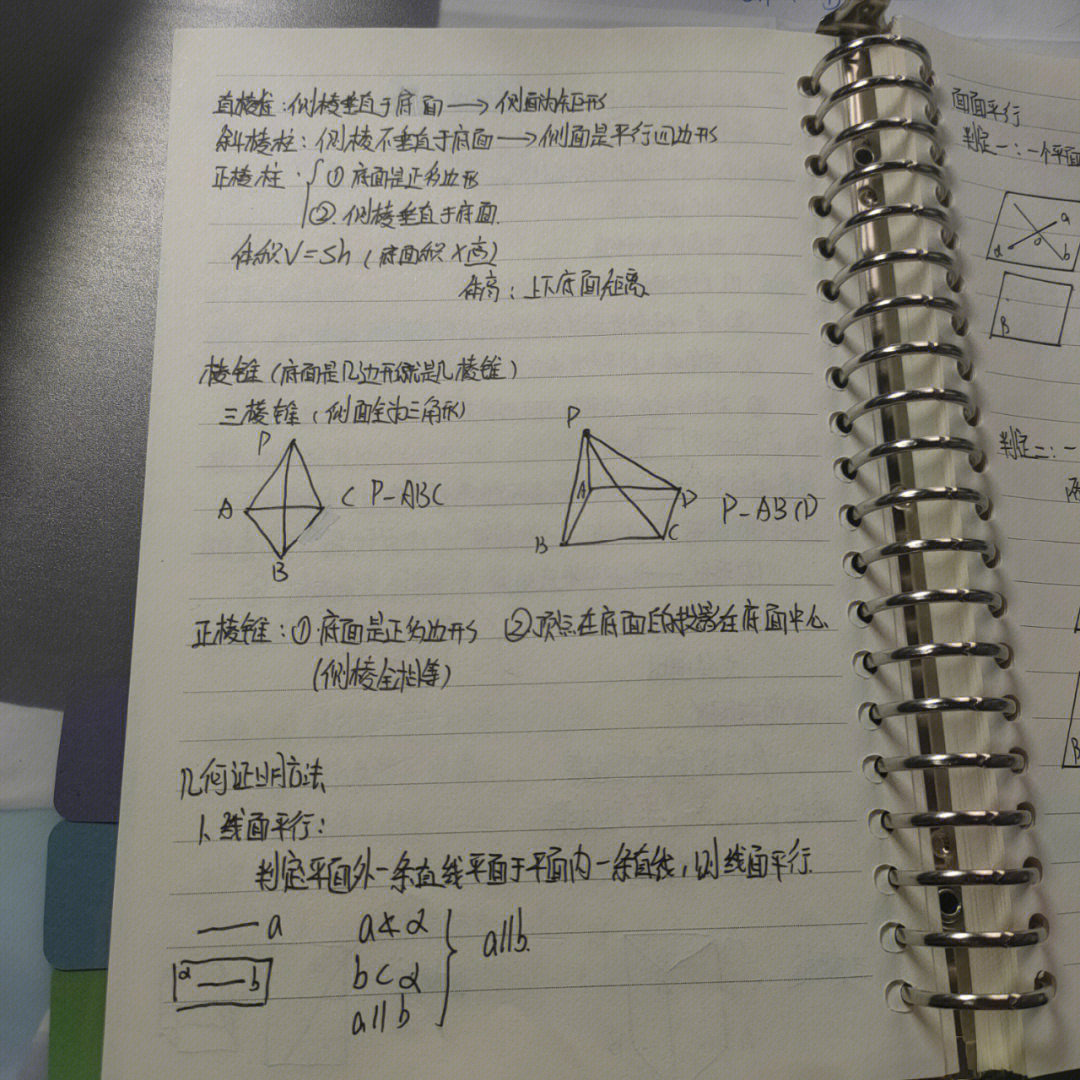 直棱柱：侧棱垂直于底面 → 侧面为矩形
斜棱柱：侧棱不垂直于底面 → 侧面是平行四边形
正棱柱：① 底面是正多边形
② 侧棱垂直于底面.
体积V=Sh（底面积×高）
体高：上下底面距离
棱锥（底面是几边形就是几棱锥）
三棱锥（侧面全为三角形）
P
A
C
B
P-ABC
P
A
D
B
C
P-ABCD
正棱锥：① 底面是正多边形 ② 顶点在底面的投影在底面中心
(侧棱全相等)
几何证明方法
1、线面平行：
判定平面外一条直线平面于平面内一条直线，则线面平行.
a
α b
a⊄α
b⊂α
a∥b
a∥b.
面面平行
判定一：一个平面
a
α
b
β
判定二：一
B